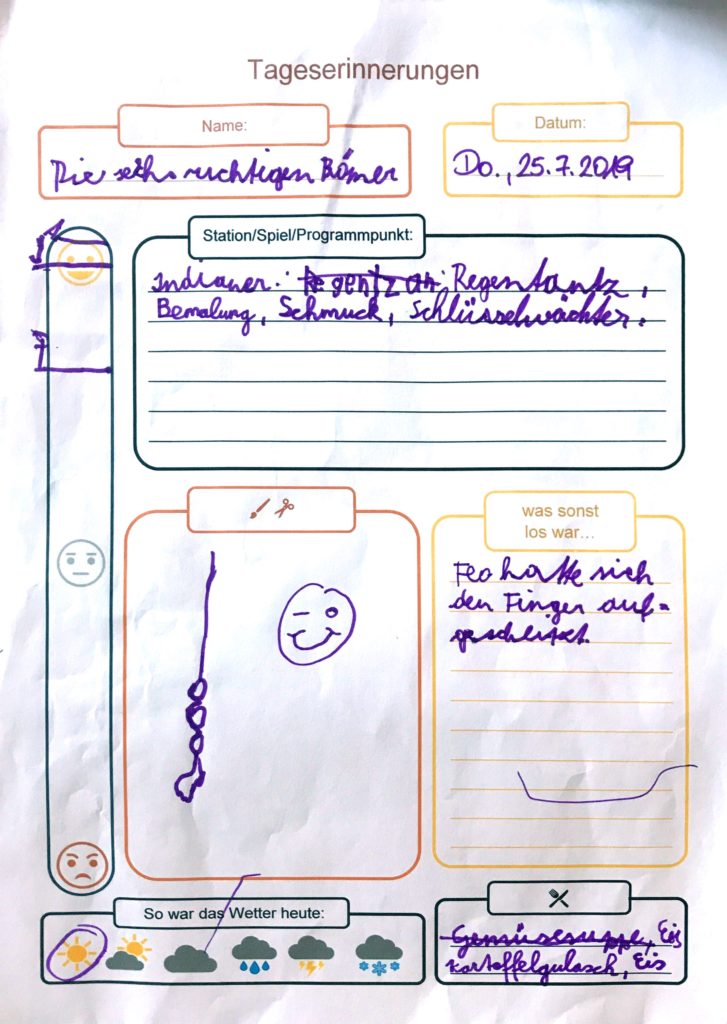 Tageserinnerungen
Name:
Die sechs ruchtigen Römer
Datum:
Do., 25.7.2019
1
7
Station/Spiel/Programmpunkt:
Indianer: Regentantz,
Bemalung, Schmuck, Schlüsselwächter.
was sonst
los war...
Feo hatte sich
den Finger auf-
geschlitzt.
So war das Wetter heute:
Gemüsesuppe, Eis
Kartoffelgulasch, Eis